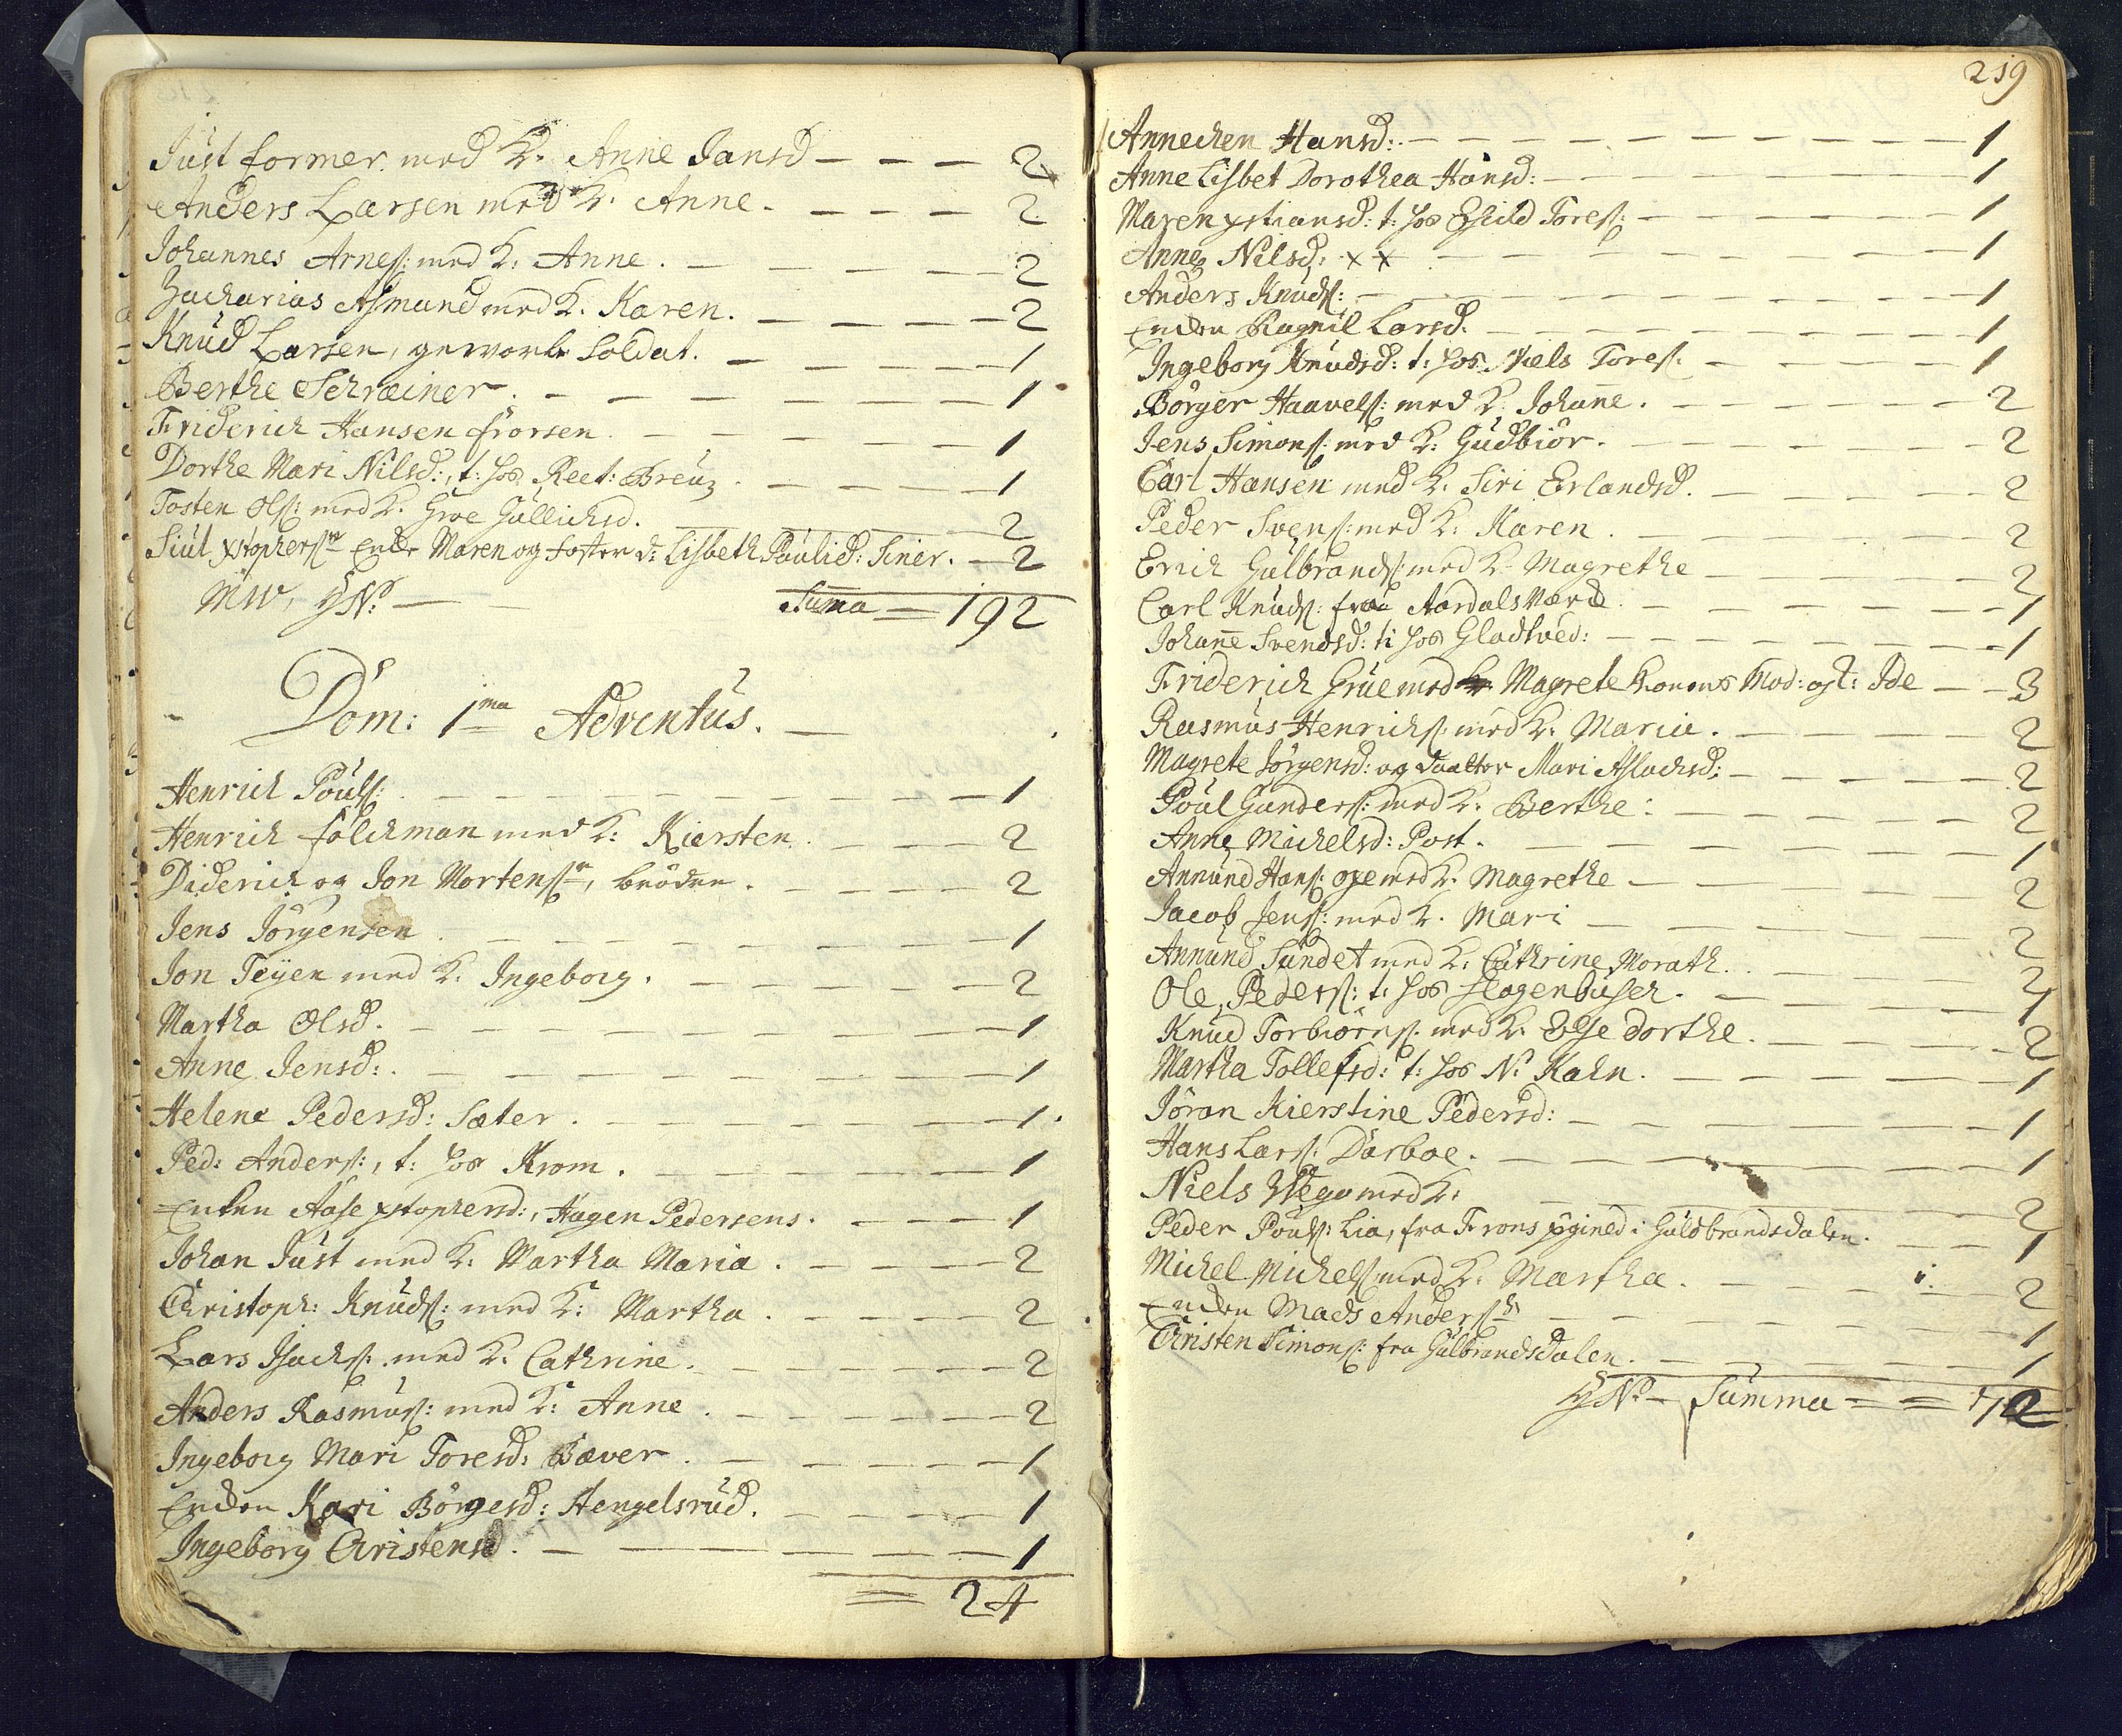 Just former med K. Anne Jansd — — — 2
Anders Larsen med K. Anne. — — — 2
Johannes Arnes: med K: Anne. — — — — 2
Zacharias Asmund med K. Karen. — — — — 2
Knud Larsen, geworbr Soldat. — — 1
Berthe Schræiner. — — — — — — 1
Friderich Hansen Frorsen. — — — — — 1
Dorthe Mari Nilsd:, t: hos Reet: Breuz. — — — — 1
Tosten Ols: med K. Groe Gullichsd. — — — — 2
Siul Xstophersn Enke Maren og foster d: Lisbeth Paulid: Siner. — 2
MW, HNs — — Suma = 192
Dom: 1ma Adventus. —
Henrich Pouls: — — — — — — — — 1
Henrich Folchman med K: Kiersten. — — — 2
Diderich og Jon Mortensn, brödre. — — — — 2
Jens Jörgensen. — — — — — — — 1
Jon Teÿen med K. Ingeborg. — — — — — 2
Martha Olsd. — — — — — — — 1
Anne Jensd: — — — — — — — 1
Helene Pedersd: Sæter. — — — — — — 1.
Ped: Anders:, t: hos Krom. — — — — — 1
Enken Aase Xstophersd:, Hagen Pedersens. — — — 1
Johan Just med K. Martha Maria. — — — — 2
Christoph: Knuds: med K: Martha. — — — — 2
Lars Isachs: med K. Cathrine. — — — — — 2
Anders Rasmus: med K: Anne. — — — — — 2
Ingeborg Mari Toresd: Bæver. — — — — — 1
Encken Kari Börgesd: Hengelsrud. — — — — 1
Ingeborg Christensd. — — — — — — 1
= 24
219
Annechen Hansd: — — — — — — — — 1
Anne Lisbet Dorothea Hansd: — — — — — — 1
Maren Xstiansd: t: hos Eskild Tores: — — — — — 1
Anne Nilsd: xx — — — — — — — 1
Anders Knuds: — — — — — — — — 1
Encken Ragnil Larsd. — — — — — — — 1
Ingeborg Knudsd: t: hos Niels Tores: — — — — 1
Börger Haavels: med K. Johanne. — — — — — 2
Jens Simons: med K: Gudbiör. — — — — — 2
Carl Hansen med K. Siri Erlandsd. — — — — 2
Peder Svens: med K: Karen. — — — — — 2
Erich Gulbrands: med K. Magrethe — — — — — 2
Carl Knuds: fraa Aardals Værck. — — — — — 1
Johanne Svendsd: t: hos Gladtved: — — — — — 1
Friderich Grue med Magrete Konens Mod: og t: Ide — — 3
Rasmus Henrichs: med K. Maria. — — — — 2
Magrete Jörgensd: og daatter Mari Aslachsd: — — — — 2
Poul Gunders: med K. Berthe: — — — — — 2
Anne Michelsd: Post. — — — — — — 1
Annund Hans: oxe med K. Magrethe — — — — 2
Jacob Jens: med K. Mari — — — — — 2
Annund Sundet med K. Cathrine Morath. — — — — 2
Ole Peders: t: hos Hagenbusch. — — — — 1
Knud Torbiörns: med K. Else Dorthe. — — — — 2
Martha Tollefsd: t: hos Ns Kahn. — — — — — 1
Jöran Kierstine Pedersd: — — — — — — 1
Hans Lars: Darboe. — — — — — — 1
Niels Wego med K: — — — — — 2
Peder Pouls: Lia, fra Frons Pgield i Guldbrandsdalen. — — 1
Michel Michels: med K. Martha. — — — — 2
Encken Mads Andersns — — — — — — 1
Christen Simons: fra Gulbrandsdalen. — — — — — 1
HNs — Summa = = 72